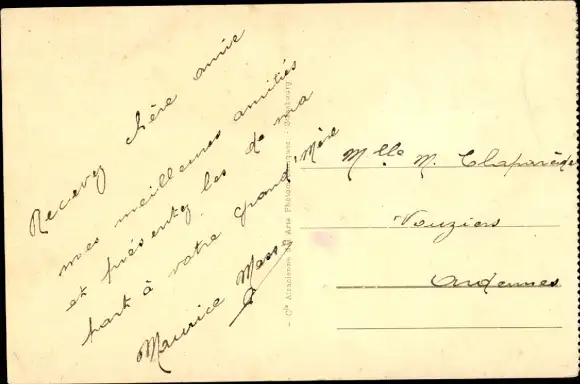 Recevez chère amie
mes meilleures amitiés
et présentez les de ma
part à votre grand' Mère
Maurice Masse
- Cie Alsacienne des Arts Photomécaniques - Strasbourg
Mlle M. Claparède
Vouziers
Ardennes